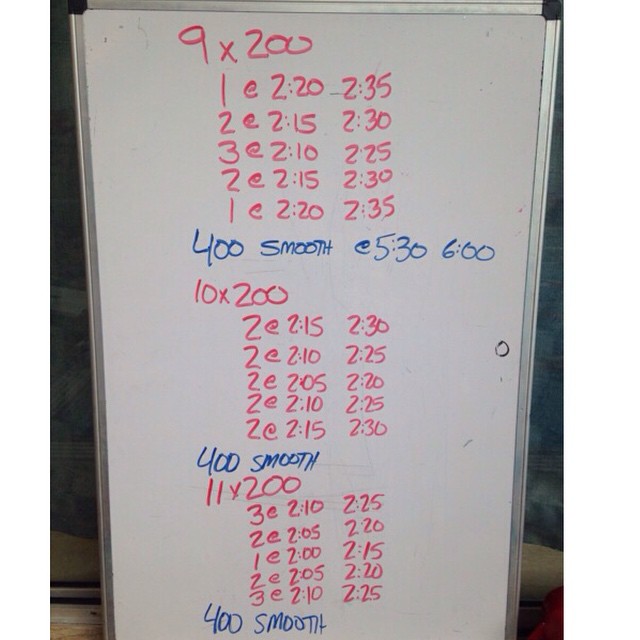 9 x 200
1 @ 2:20 2:35
2 @ 2:15 2:30
3 @ 2:10 2:25
2 @ 2:15 2:30
1 @ 2:20 2:35
400 SMOOTH @ 5:30 6:00
10 x 200
2 @ 2:15 2:30
2 @ 2:10 2:25
2 @ 2:05 2:20
2 @ 2:10 2:25
2 @ 2:15 2:30
400 SMOOTH
11 x 200
3 @ 2:10 2:25
2 @ 2:05 2:20
1 @ 2:00 2:15
2 @ 2:05 2:20
3 @ 2:10 2:25
400 SMOOTH